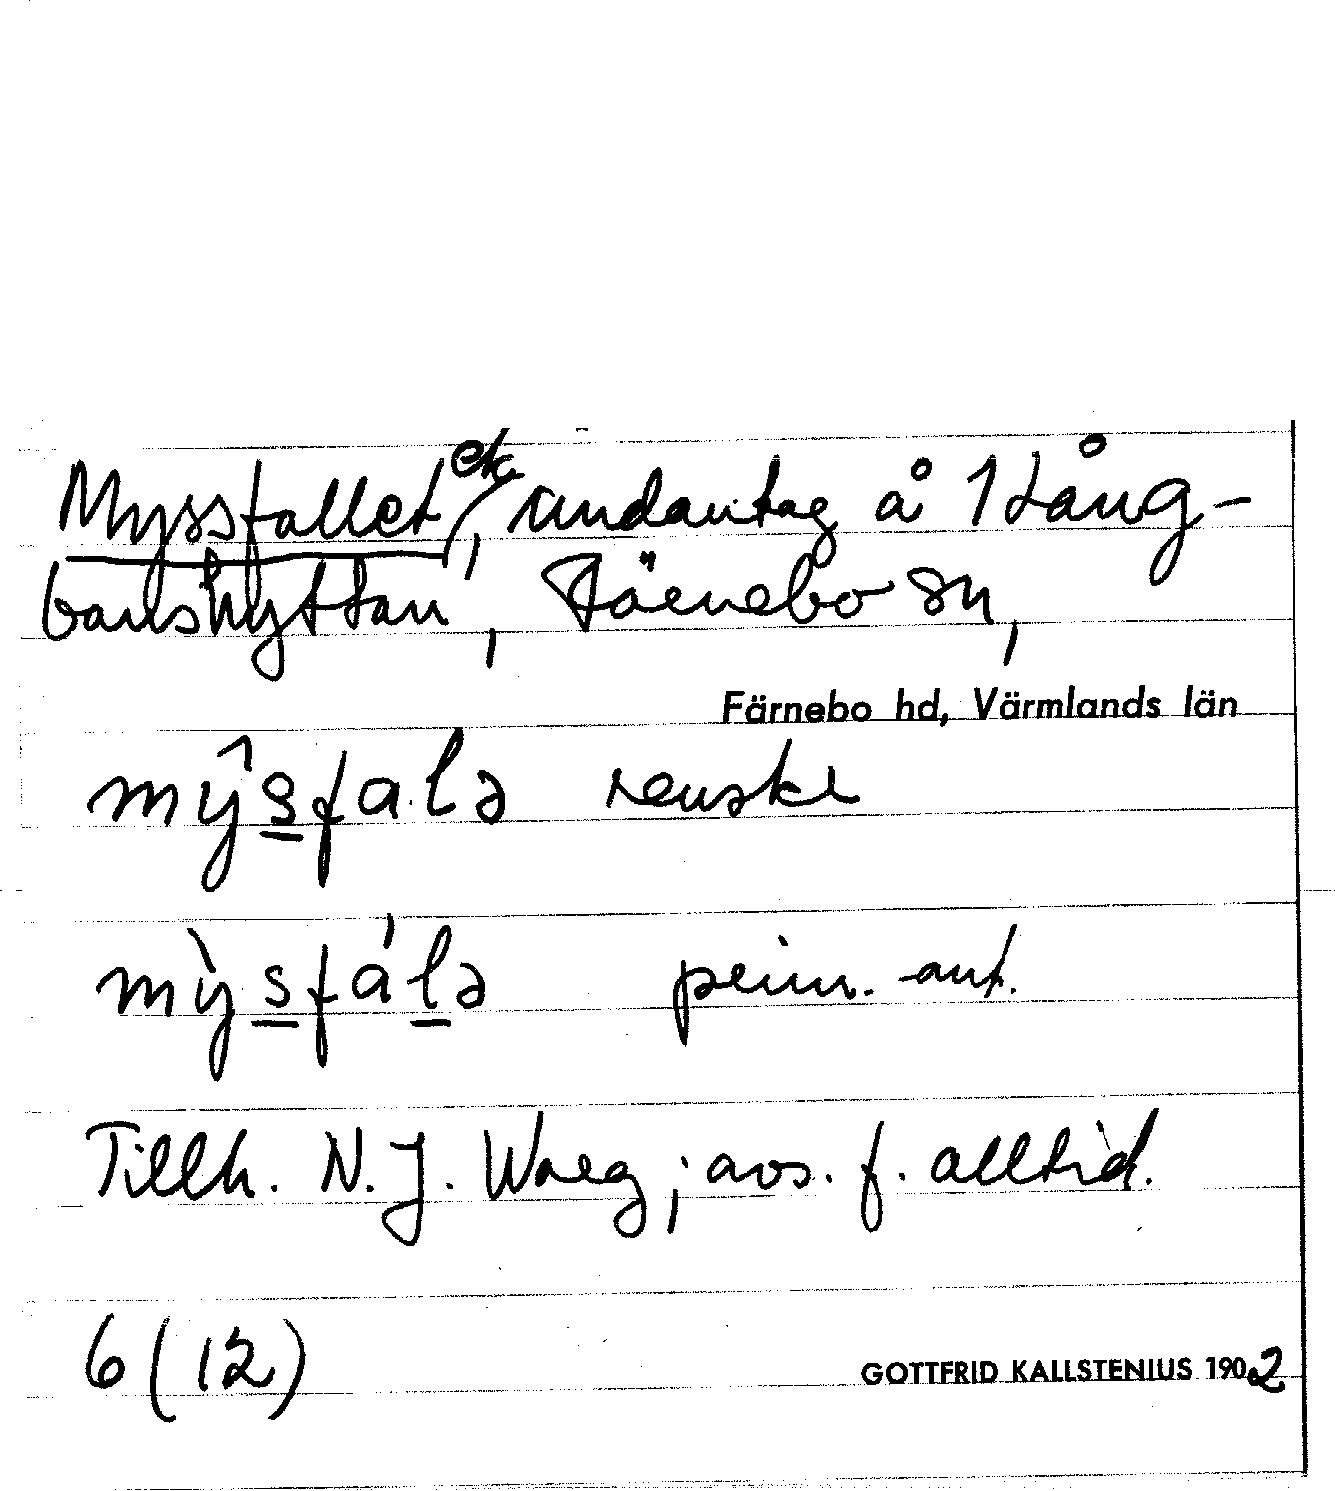 Myssfallet, ek, undantag å 1 Lång-
banshyttan, Färnebo sn,
Färnebo hd, Värmlands län
mŷsfalə renskr
mỳsfálə
Tillh. N. J. Warg; avs. f. alltid.
6 (12)
GOTTFRID KALLSTENIUS 1902